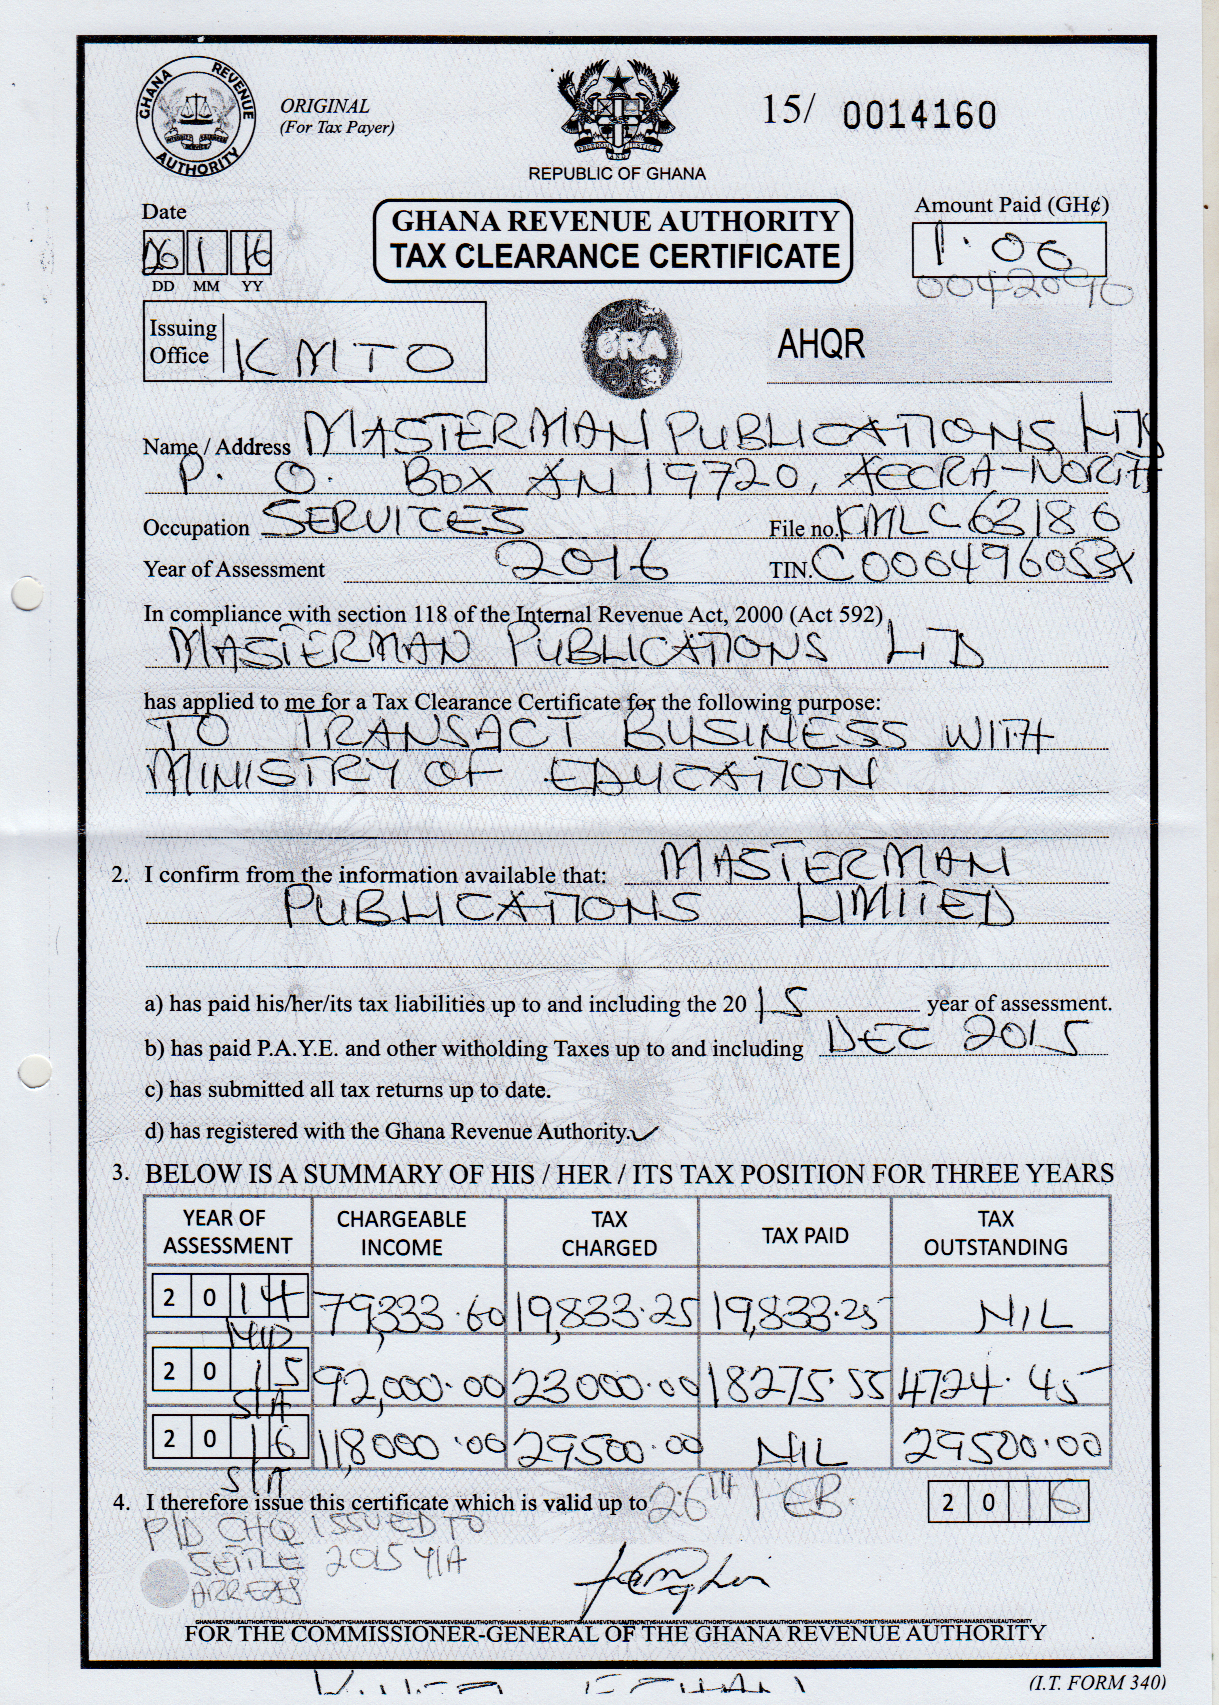 GHANA REVENUE AUTHORITY
ORIGINAL
(For Tax Payer)
FREEDOM AND JUSTICE
REPUBLIC OF GHANA
15/ 0014160
Date
26 1 16
DD MM YY
GHANA REVENUE AUTHORITY
TAX CLEARANCE CERTIFICATE
Amount Paid (GH¢)
1.06
0042090
Issuing Office KMTO
GRA
AHQR
Name / Address MASTERMAN PUBLICATIONS LTD
P. O. BOX AN 19720, ACCRA-NORTH
Occupation SERVICES File no. KMLC63186
Year of Assessment 2016 TIN. C000496053X
In compliance with section 118 of the Internal Revenue Act, 2000 (Act 592),
MASTERMAN PUBLICATIONS LTD
has applied to me for a Tax Clearance Certificate for the following purpose:
TO TRANSACT BUSINESS WITH
MINISTRY OF EDUCATION
2. I confirm from the information available that: MASTERMAN
PUBLICATIONS LIMITED
a) has paid his/her/its tax liabilities up to and including the 20 15 year of assessment.
b) has paid P.A.Y.E. and other witholding Taxes up to and including DEC 2015
c) has submitted all tax returns up to date.
d) has registered with the Ghana Revenue Authority. ✓
3. BELOW IS A SUMMARY OF HIS / HER / ITS TAX POSITION FOR THREE YEARS
YEAR OF ASSESSMENT CHARGEABLE INCOME TAX CHARGED TAX PAID TAX OUTSTANDING
2014 79,333.60 19,833.25 19,833.25 NIL
2015 92,000.00 23000.00 18275.55 4724.45
S/A
2016 118,000.00 29500.00 NIL 29500.00
S/A
4. I therefore issue this certificate which is valid up to 26TH FEB. 2016
P/D CHQ ISSUED TO
SETTLE 2015 Y/A
ARREAS
GHANAREVENUEAUTHORITYGHANAREVENUEAUTHORITYGHANAREVENUEAUTHORITY
FOR THE COMMISSIONER-GENERAL OF THE GHANA REVENUE AUTHORITY
(I.T. FORM 340)